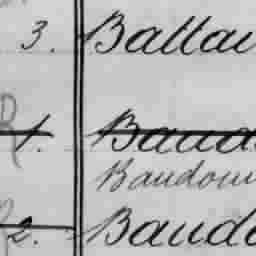 3. Ballau
1. Bauda
Baudoui
2. Baudo